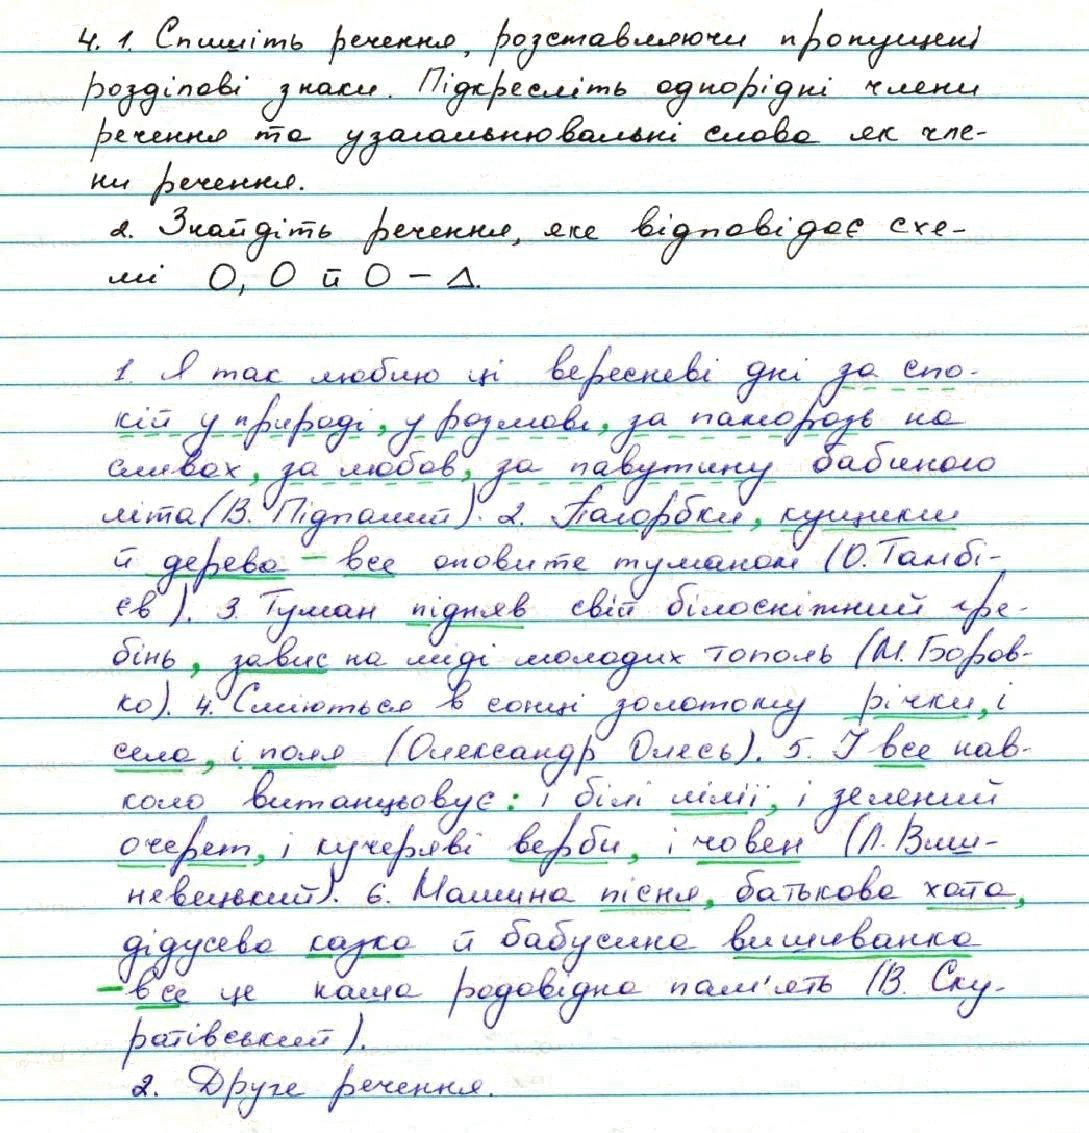 4. 1. Спишіть речення, розставляючи пропущені
розділові знаки. Підкресліть однорідні члени
речення та узагальнювальні слова як чле-
ни речення.
2. Знайдіть речення, яке відповідає схе-
мі О, О й О – Δ.
1. Я так люблю ці вересневі дні за спо-
кій у природі, у розмові, за паморозь на
сливах, за любов, за павутину бабиного
літа (В. Підпалий). 2. Пагорбки, кущики
й дерева – все оповите туманом (О. Тамбі-
єв). 3. Туман підняв свій білосніжний гре-
бінь, завис на міді молодих тополь (М. Боров-
ко). 4. Сміються в сонці золотому річки, і
села, і поля (Олександр Олесь). 5. І все нав-
коло витанцьовує: і білі лілії, і зелений
очерет, і кучеряві верби, і човен (Л. Виш-
невецький). 6. Мамина пісня, батькова хата,
дідусева казка й бабусина вишиванка
– все це наша родовідна пам'ять (В. Ску-
ратівський).
2. Друге речення.